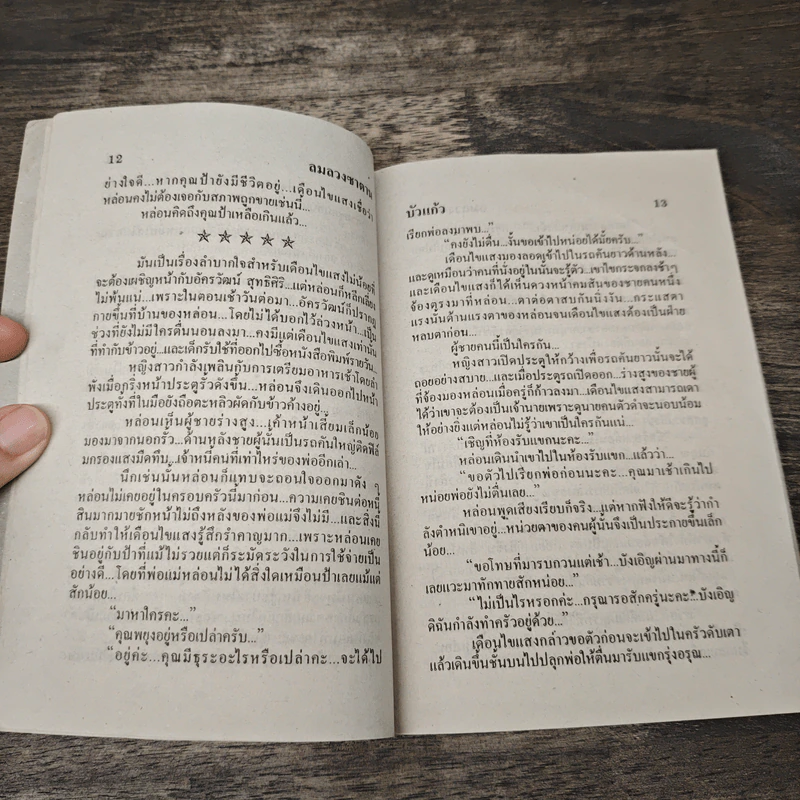 12
ลมลวงซาตาน
ย่างใจดี...หากคุณป้ายังมีชีวิตอยู่...เดือนไขแสงเชื่อว่า
หล่อนคงไม่ต้องเจอกับสภาพถูกขายเช่นนี้...
หล่อนคิดถึงคุณป้าเหลือเกินแล้ว...
มันเป็นเรื่องลำบากใจสำหรับเดือนไขแสงไม่น้อยที่
จะต้องเผชิญหน้ากับอัครวัฒน์ สุทธิศิริ...แต่หล่อนก็หลีกเลี่ยง
ไม่พ้นแน่...เพราะในตอนเช้าวันต่อมา...อัครวัฒน์ก็ปรากฏ
กายขึ้นที่บ้านของหล่อน...โดยไม่ได้บอกไว้ล่วงหน้า...เป็น
ช่วงที่ยังไม่มีใครตื่นนอนลงมา...คงมีแต่เดือนไขแสงเท่านั้น
ที่ทำกับข้าวอยู่...และเด็กรับใช้ที่ออกไปซื้อหนังสือพิมพ์รายวัน...
หญิงสาวกำลังเพลินกับการเตรียมอาหารเช้าโดยลำ
พังเมื่อกริ่งหน้าประตูรั้วดังขึ้น...หล่อนจึงเดินออกไปหน้า
ประตูทั้งที่ในมือยังถือตะหลิวผัดกับข้าวค้างอยู่...
หล่อนเห็นผู้ชายร่างสูง...เค้าหน้าเสี้ยมเล็กน้อย
มองมาจากนอกรั้ว...ด้านหลังชายผู้นั้นเป็นรถคันใหญ่ติดฟิล์
มกรองแสงมืดทึบ...เจ้าหนี้คนที่เท่าไหร่ของพ่ออีกเล่า...
นึกเช่นนั้นหล่อนก็แทบจะถอนใจออกมาดัง ๆ
หล่อนไม่เคยอยู่ในครอบครัวนี้มาก่อน...ความเคยชินต่อหนี้
สินมากมายชักหน้าไม่ถึงหลังของพ่อแม่จึงไม่มี...และสิ่งนี้
กลับทำให้เดือนไขแสงรู้สึกรำคาญมาก...เพราะหล่อนเคย
ชินอยู่กับป้าที่แม้ไม่รวยแต่ก็ระมัดระวังในการใช้จ่ายเป็น
อย่างดี...โดยที่พ่อแม่หล่อนไม่ได้สิ่งใดเหมือนป้าเลยแม้แต่
สักน้อย...
“มาหาใครคะ...”
“คุณพยุงอยู่หรือเปล่าครับ...”
“อยู่ค่ะ...คุณมีธุระอะไรหรือเปล่าคะ...จะได้ไป
บัวแก้ว
13
เรียกพ่อลงมาพบ...”
“คงยังไม่ตื่น...งั้นขอเข้าไปหน่อยได้มั้ยครับ...”
เดือนไขแสงมองลอดเข้าไปในรถคันยาวด้านหลัง...
และดูเหมือนว่าคนที่นั่งอยู่ในนั้นจะรู้ตัว...เขาไขกระจกลงช้าๆ
และเดือนไขแสงก็ได้เห็นดวงหน้าคมสันของชายคนหนึ่ง
จ้องตรงมาที่หล่อน...ตาต่อตาสบกันนิ่งงัน...กระแสตา
แรงนั้นต้านแรงตาของหล่อนจนเดือนไขแสงต้องเป็นฝ่าย
หลบตาก่อน...
ผู้ชายคนนี้เป็นใครกัน...
หญิงสาวเปิดประตูให้กว้างเพื่อรถคันยาวนั้นจะได้
ถอยอย่างสบาย...และเมื่อประตูรถเปิดออก...ร่างสูงของชายผู้
ที่จ้องมองหล่อนเมื่อครู่ก็ก้าวลงมา...เดือนไขแสงสามารถเดา
ได้ว่าเขาจะต้องเป็นเจ้านายเพราะดูนายคนตัวดำจะนอบน้อม
ให้อย่างยิ่งแต่หล่อนไม่รู้ว่าเขาเป็นใครกันแน่...
“เชิญที่ห้องรับแขกนะคะ...”
หล่อนเดินนำเขาไปในห้องรับแขก...แล้วว่า...
“ขอตัวไปเรียกพ่อก่อนนะคะ...คุณมาเช้าเกินไป
หน่อยพ่อยังไม่ตื่นเลย...”
หล่อนพูดเสียงเรียบก็จริง...แต่หากฟังให้ดีจะรู้ว่ากำ
ลังตำหนิเขาอยู่...หน่วยตาของคนผู้นั้นจึงเป็นประกายขึ้นเล็ก
น้อย...
“ขอโทษที่มารบกวนแต่เช้า...บังเอิญผ่านมาทางนี้ก็
เลยแวะมาทักทายสักหน่อย...”
“ไม่เป็นไรหรอกค่ะ...กรุณารอสักครู่นะคะ...บังเอิญ
ดิฉันกำลังทำครัวอยู่ด้วย...”
เดือนไขแสงกล่าวขอตัวก่อนจะเข้าไปในครัวดับเตา
แล้วเดินขึ้นชั้นบนไปปลุกพ่อให้ตื่นมารับแขกรุ่งอรุณ...